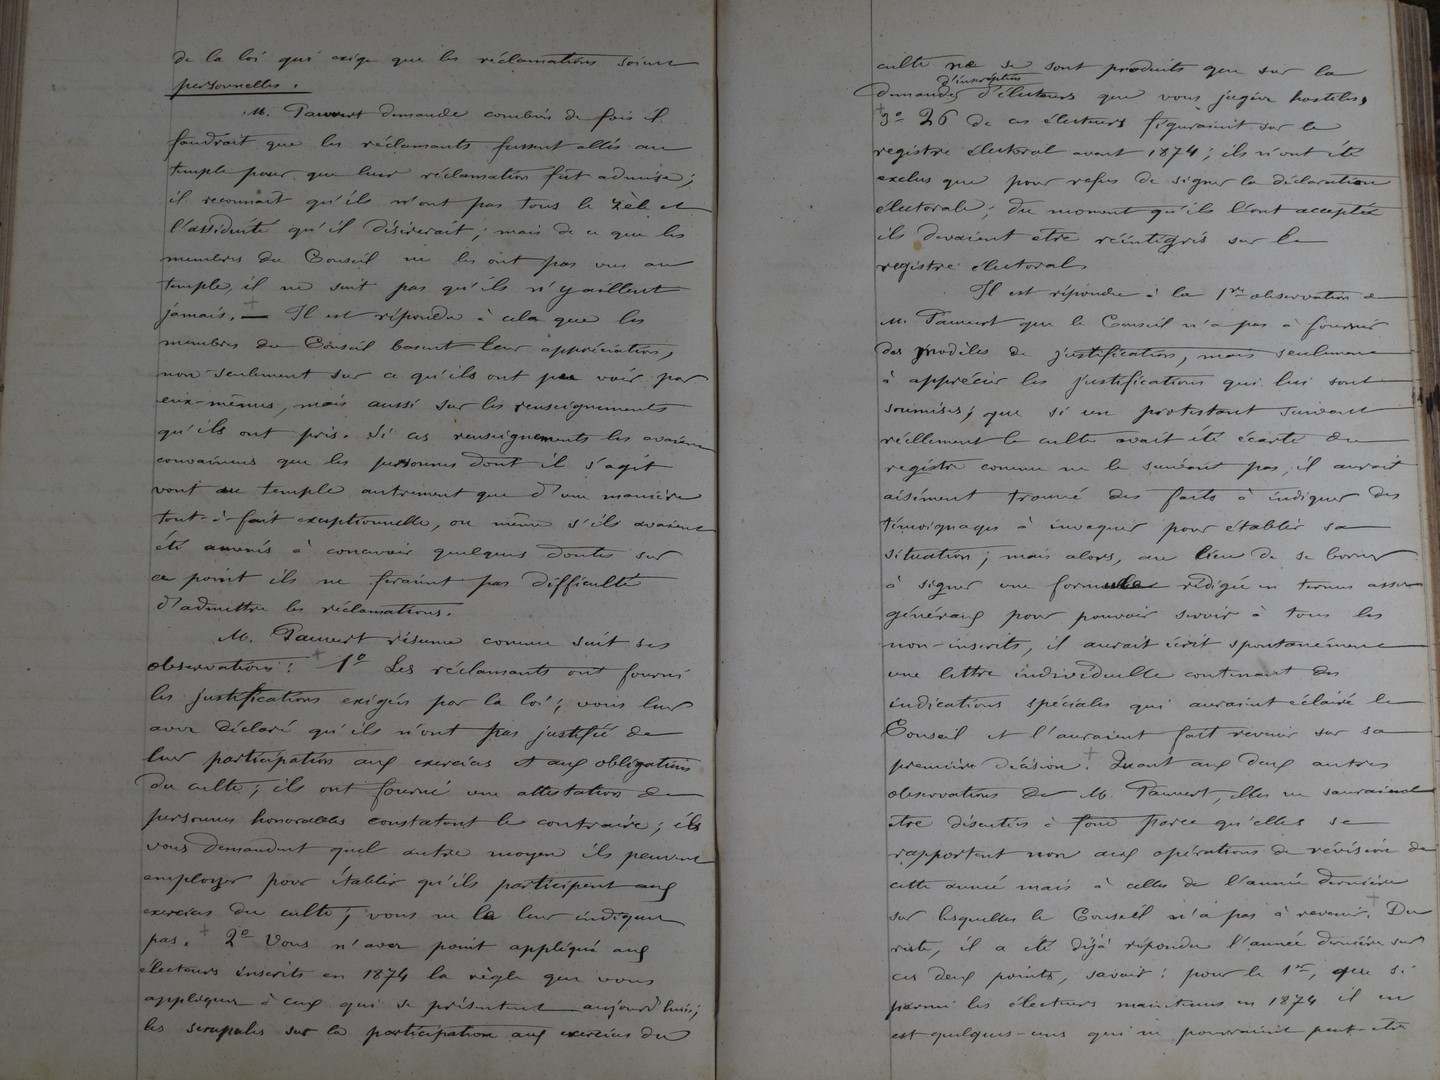 de la loi qui exige que les réclamations soient
personnelles.
M. Pauvert demande combien de fois il
faudrait que les réclamants fussent allés au
temple pour que leur réclamation fût admise ;
il reconnait qu'ils n'ont pas tous le zèle et
l'assiduité qu'il désirerait ; mais de ce que les
membres du Conseil ne les ont pas vus au
temple, il ne suit pas qu'ils n'y aillent
jamais. — Il est répondu à cela que les
membres du Conseil basent leur appréciation,
non seulement sur ce qu'ils ont pu voir par
eux-mêmes, mais aussi sur les renseignements
qu'ils ont pris. Si ces renseignements les avaient
convaincus que les personnes dont il s'agit
vont au temple autrement que d'une manière
tout-à-fait exceptionnelle, ou même s'ils avaient
été amenés à concevoir quelques doutes sur
ce point ils ne feraient pas difficulté
d'admettre les réclamations.
M. Pauvert résume comme suit ses
observations : 1° Les réclamants ont fourni
les justifications exigées par la loi ; vous leur
avez déclaré qu'ils n'ont pas justifié de
leur participation aux exercices et aux obligations
du culte ; ils ont fourni une attestation de
personnes honorables constatant le contraire ; ils
vous demandent quel autre moyen ils peuvent
employer pour établir qu'ils participent aux
exercices du culte ; vous ne le leur indiquez
pas. 2° Vous n'avez point appliqué aux
électeurs inscrits en 1874 la règle que vous
appliquez à ceux qui se présentent aujourd'hui ;
les scrupules sur la participation aux exercices du
culte ne se sont produits que sur la
demande d'inscription d'électeurs que vous jugiez hostiles,
3° 26 de ces électeurs figuraient sur le
registre électoral avant 1874 ; ils n'ont été
exclus que pour refus de signer la déclaration
électorale ; du moment qu'ils l'ont acceptée
ils devaient etre réintégrés sur le
registre électoral.
Il est répondu à la 1re observation de
M. Pauvert que le Conseil n'a pas à fournir
des modèles de justification, mais seulement
à apprécier les justifications qui lui sont
soumises ; que si un protestant suivant
réellement le culte avait été écarté du
registre comme ne le suivant pas, il aurait
aisément trouvé des faits à indiquer des
témoignages à invoquer pour établir sa
situation ; mais alors, au lieu de se borner
à signer une formule rédigée en termes assez
généraux pour pouvoir servir à tous les
non-inscrits, il aurait écrit spontanément
une lettre individuelle contenant des
indications spéciales qui auraient éclairé le
Conseil et l'auraient fait revenir sur sa
première décision. Quant aux deux autres
observations de M. Pauvert, elles ne sauraient
etre discutées à fond parce qu'elles se
rapportent non aux opérations de révision de
cette année mais à celles de l'année dernière
sur lesquelles le Conseil n'a pas à revenir. Du
reste, il a été déjà répondu l'année dernière sur
ces deux points, savoir : pour le 1er, que si
parmi les électeurs maintenus en 1874 il en
est quelques-uns qui ne pourraient peut-etre